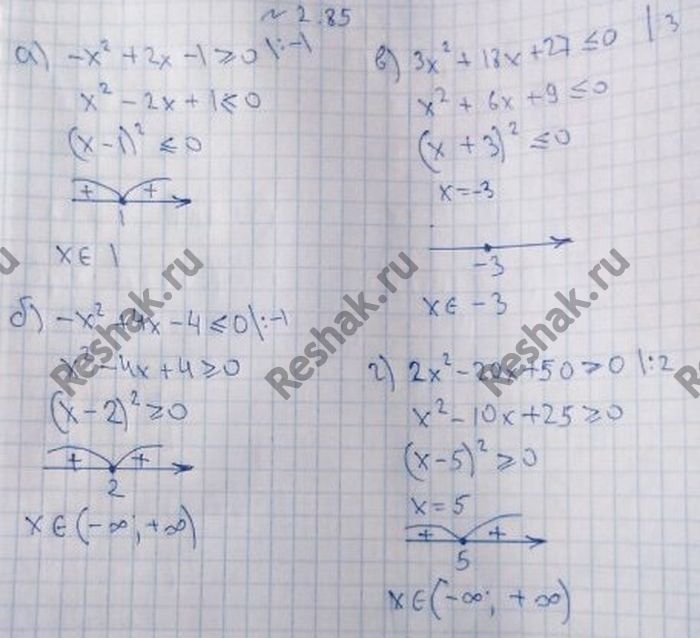 ~ 2.85
а) -x² + 2x - 1 ≥ 0 |:-1
x² - 2x + 1 ≤ 0
(x - 1)² ≤ 0
+ +
1
x ∈ 1
б) -x² + 4x - 4 ≤ 0 |:-1
x² - 4x + 4 ≥ 0
(x - 2)² ≥ 0
+ +
2
x ∈ (-∞; +∞)
в) 3x² + 18x + 27 ≤ 0 | 3
x² + 6x + 9 ≤ 0
(x + 3)² ≤ 0
x = -3
-3
x ∈ -3
г) 2x² - 20x + 50 ≥ 0 |:2
x² - 10x + 25 ≥ 0
(x - 5)² ≥ 0
x = 5
+ +
5
x ∈ (-∞; +∞)
Reshak.ru
Reshak.ru
Reshak.ru